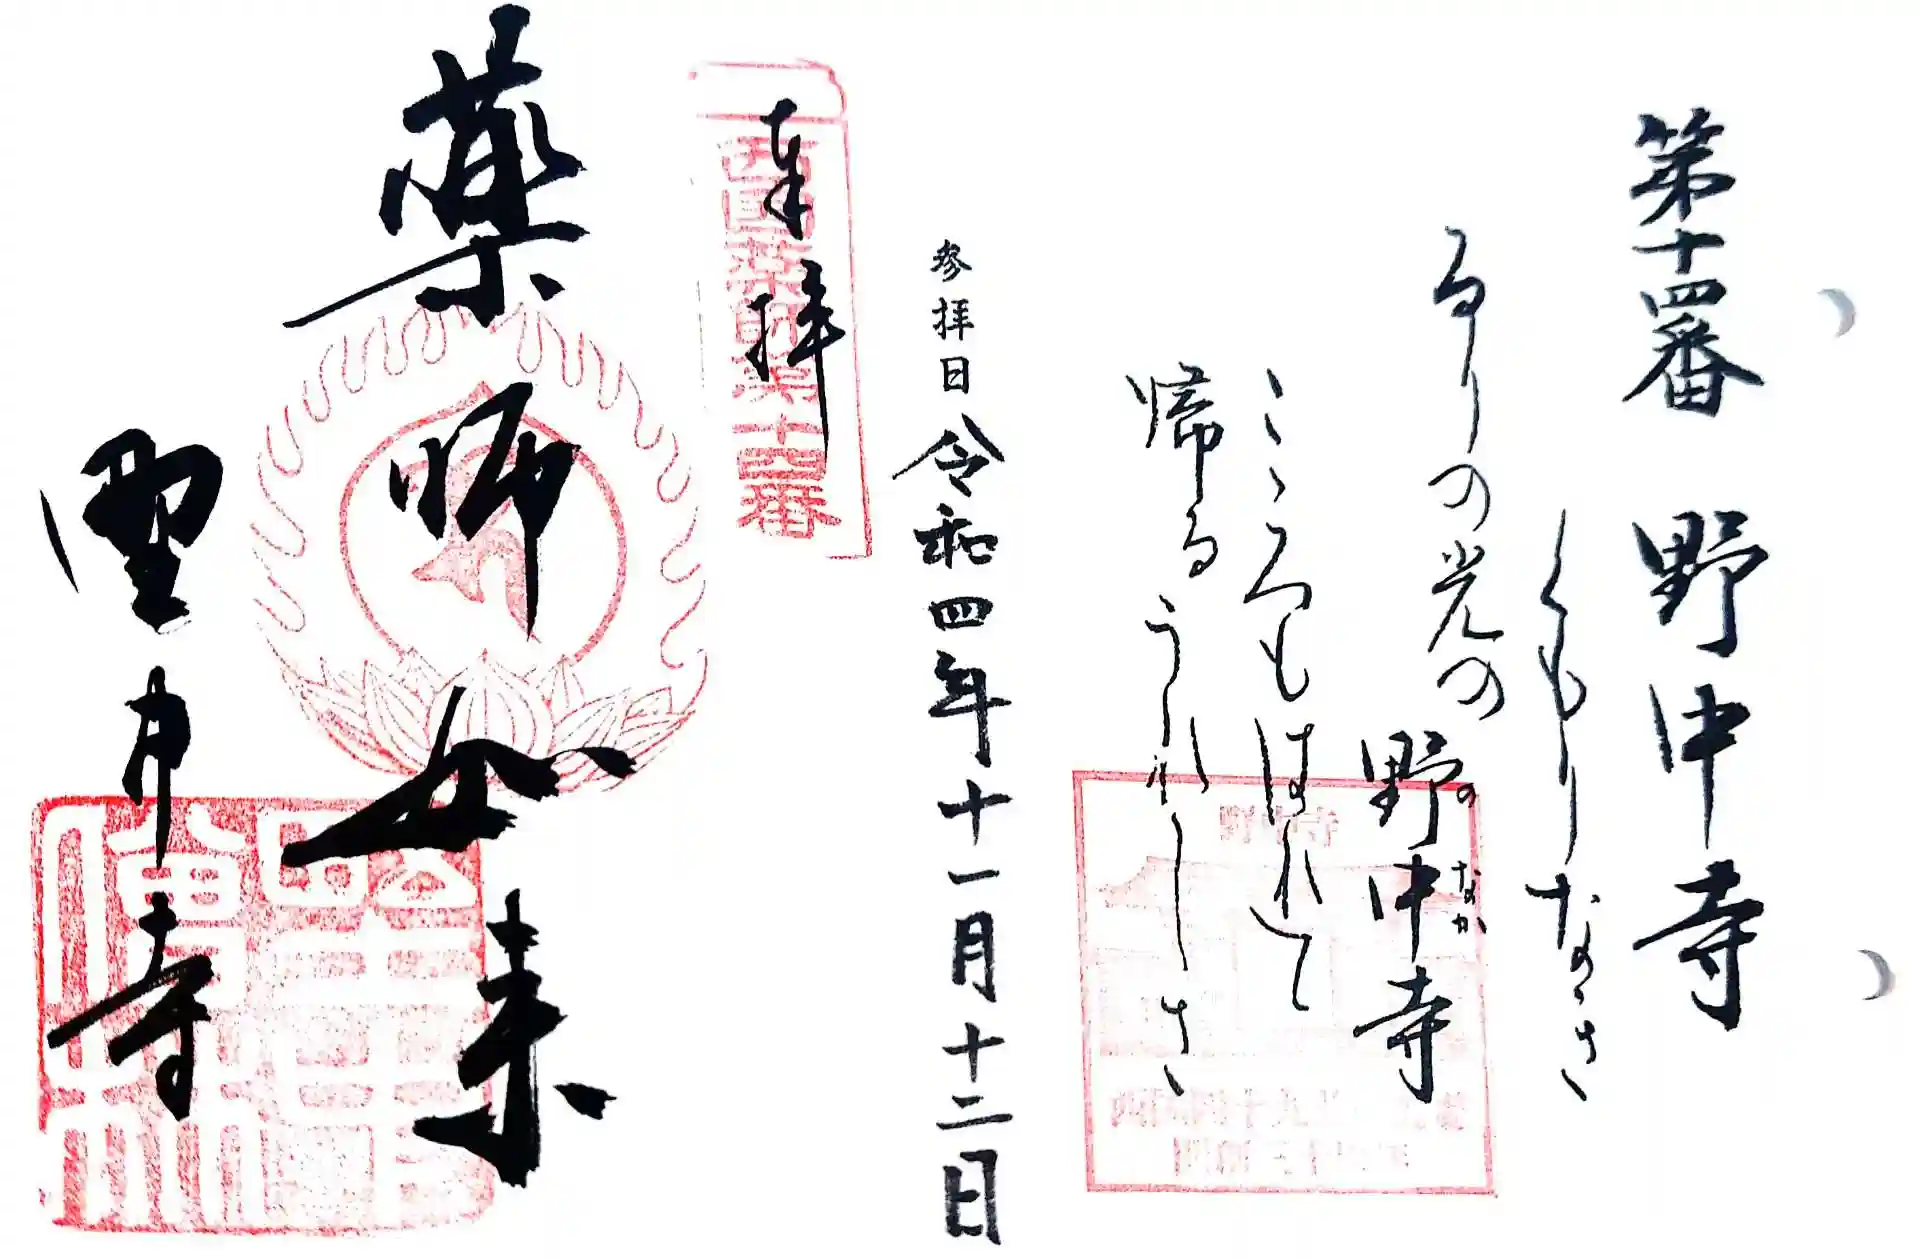 第十四番 野中寺
くもりなき
るりの光の 野中寺
のなか
こゝろもはれて
帰るうれしさ
参拝日 令和四年十一月十二日
奉拝
西國薬師第十四番
薬師如来
野中寺
野中寺